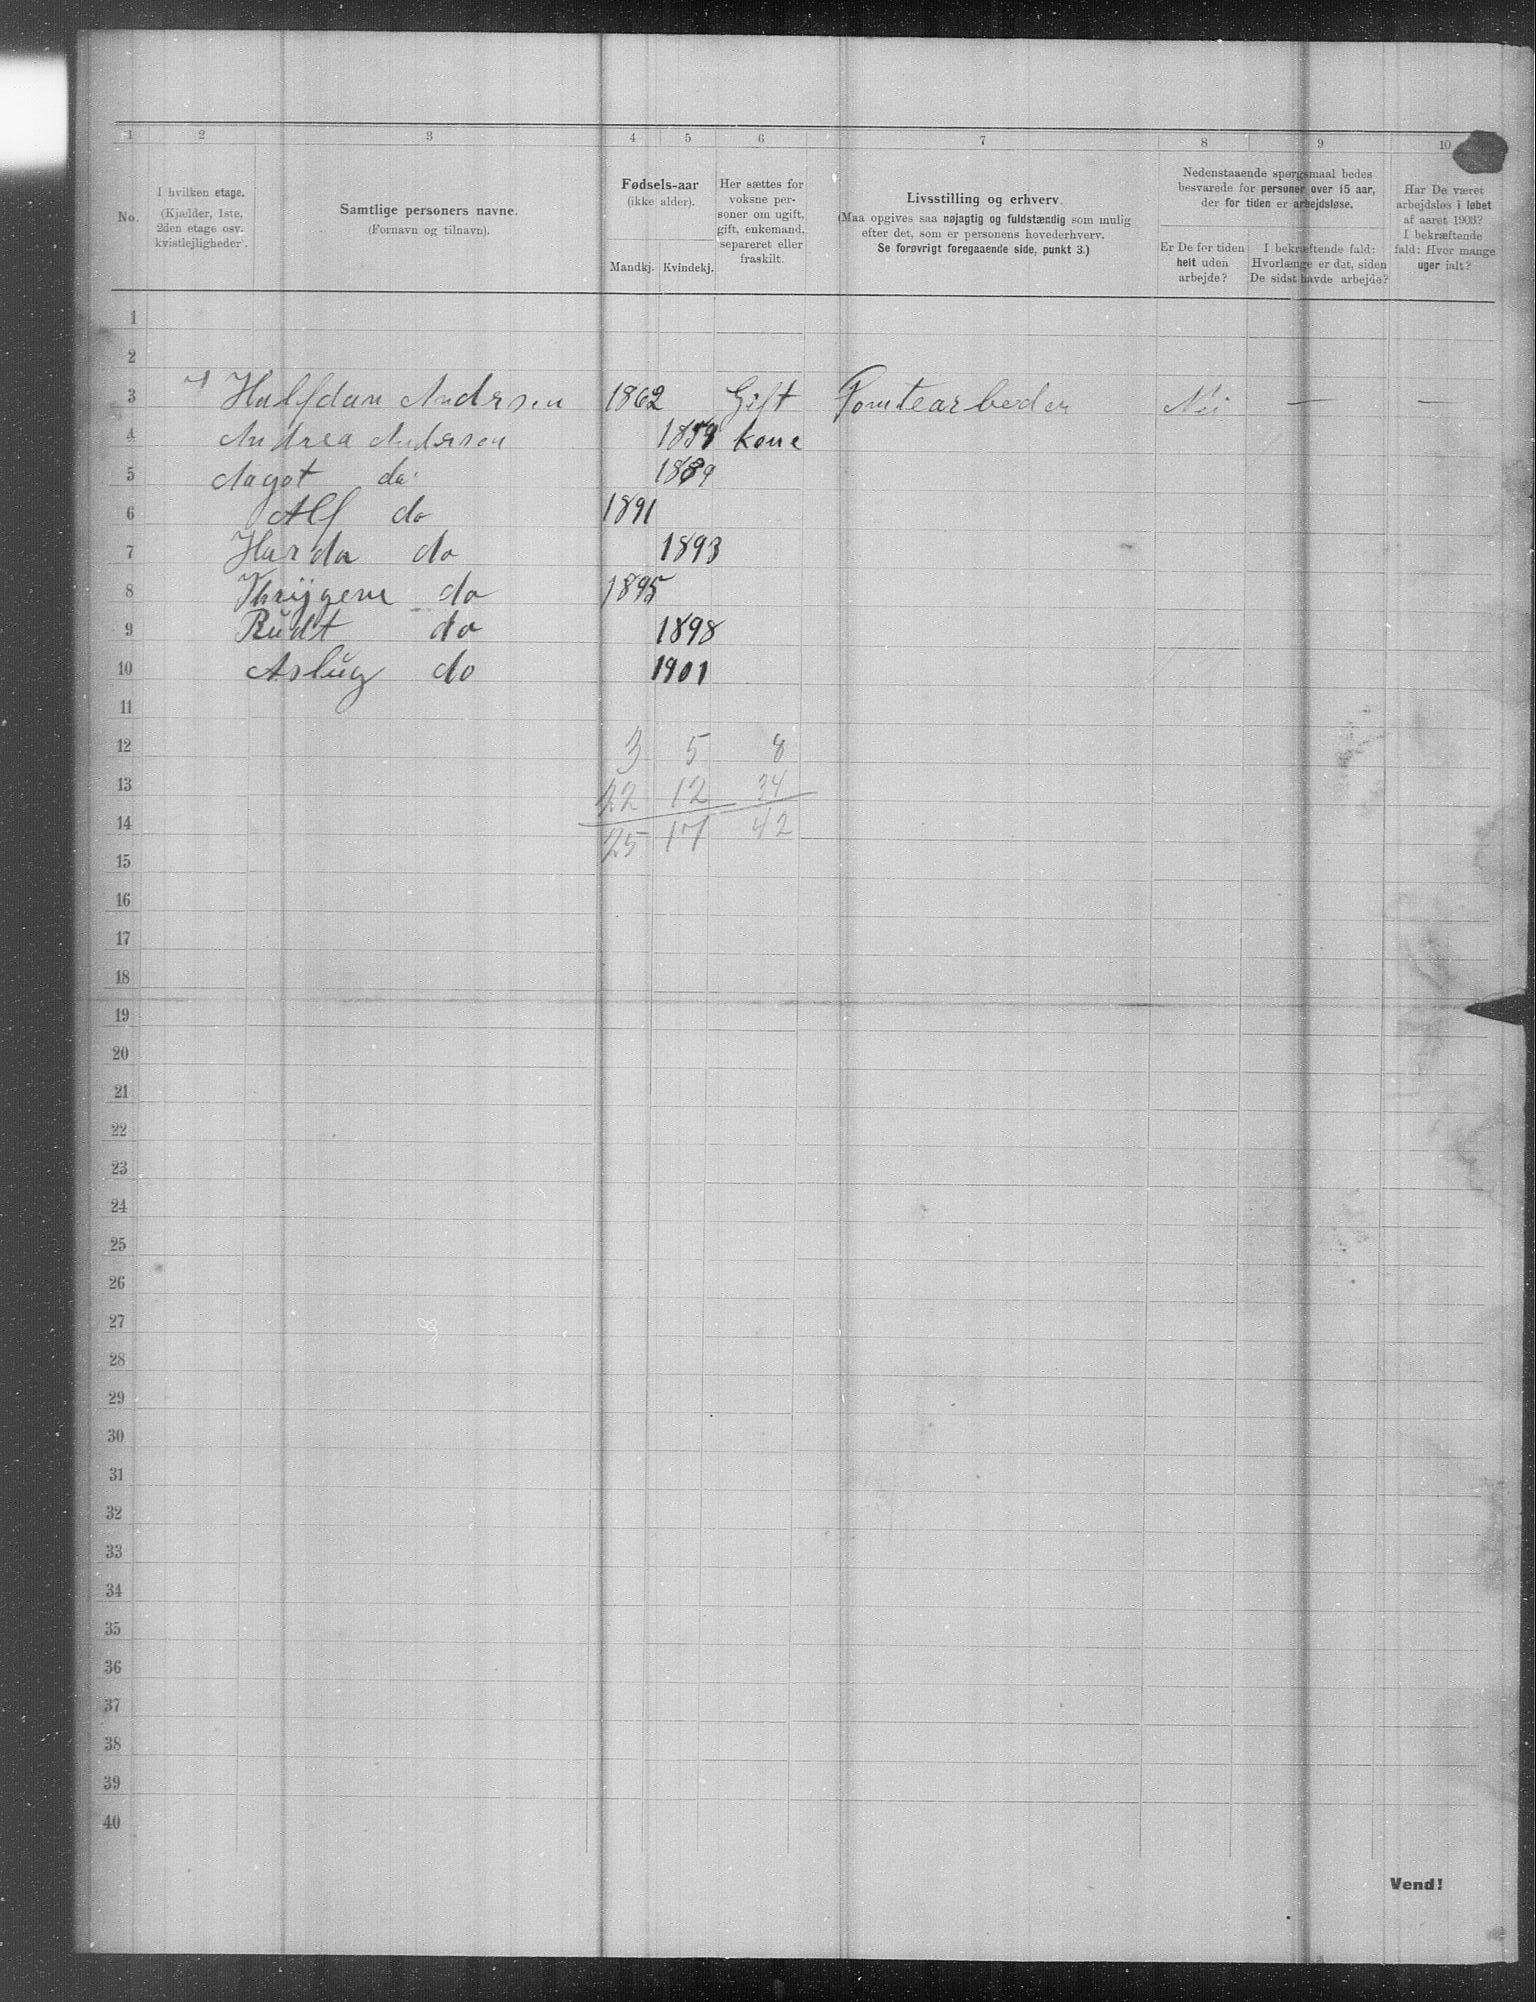 1 2 3 4 5 6 7 8 9 10
No.
I hvilken etage.
(Kjælder, 1ste,
2den etage osv.
kvistlejligheder).
Samtlige personers navne.
(Fornavn og tilnavn).
Fødsels-aar
(ikke alder).
Mandkj. Kvindekj.
Her sættes for
voksne per-
soner om ugift,
gift, enkemand,
separeret eller
fraskilt.
Livsstilling og erhverv.
(Maa opgives saa nøjagtig og fuldstændig som mulig
efter det, som er personens hovederhverv.
Se forøvrigt foregaaende side, punkt 3.)
Nedenstaaende spørgsmaal bedes
besvarede for personer over 15 aar,
der for tiden er arbejdsløse.
Er De for tiden
helt uden
arbejde?
I bekræftende fald:
Hvorlænge er det, siden
De sidst havde arbejde?
Har De været
arbejdsløs i løbet
af aaret 1903?
I bekræftende
fald: Hvor mange
uger ialt?
1
2
3 Halfdan Andersen 1862 Gift Tomtearbeder Nei — —
4 Andrea Andersen 1859 kone
5 Aagot do 1889
6 Alf do 1891
7 Harda do 1893
8 do 1895
9 Rudt do 1898
10 Aslüg do 1901
11
12 3 5 8
13 22 12 34
14 25 17 42
15
16
17
18
19
20
21
22
23
24
25
26
27
28
29
30
31
32
33
34
35
36
37
38
39
40
Vend!